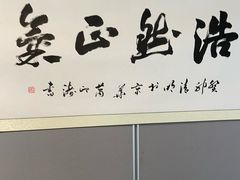 浩然正氣
癸卯清明於京華苑 涛書